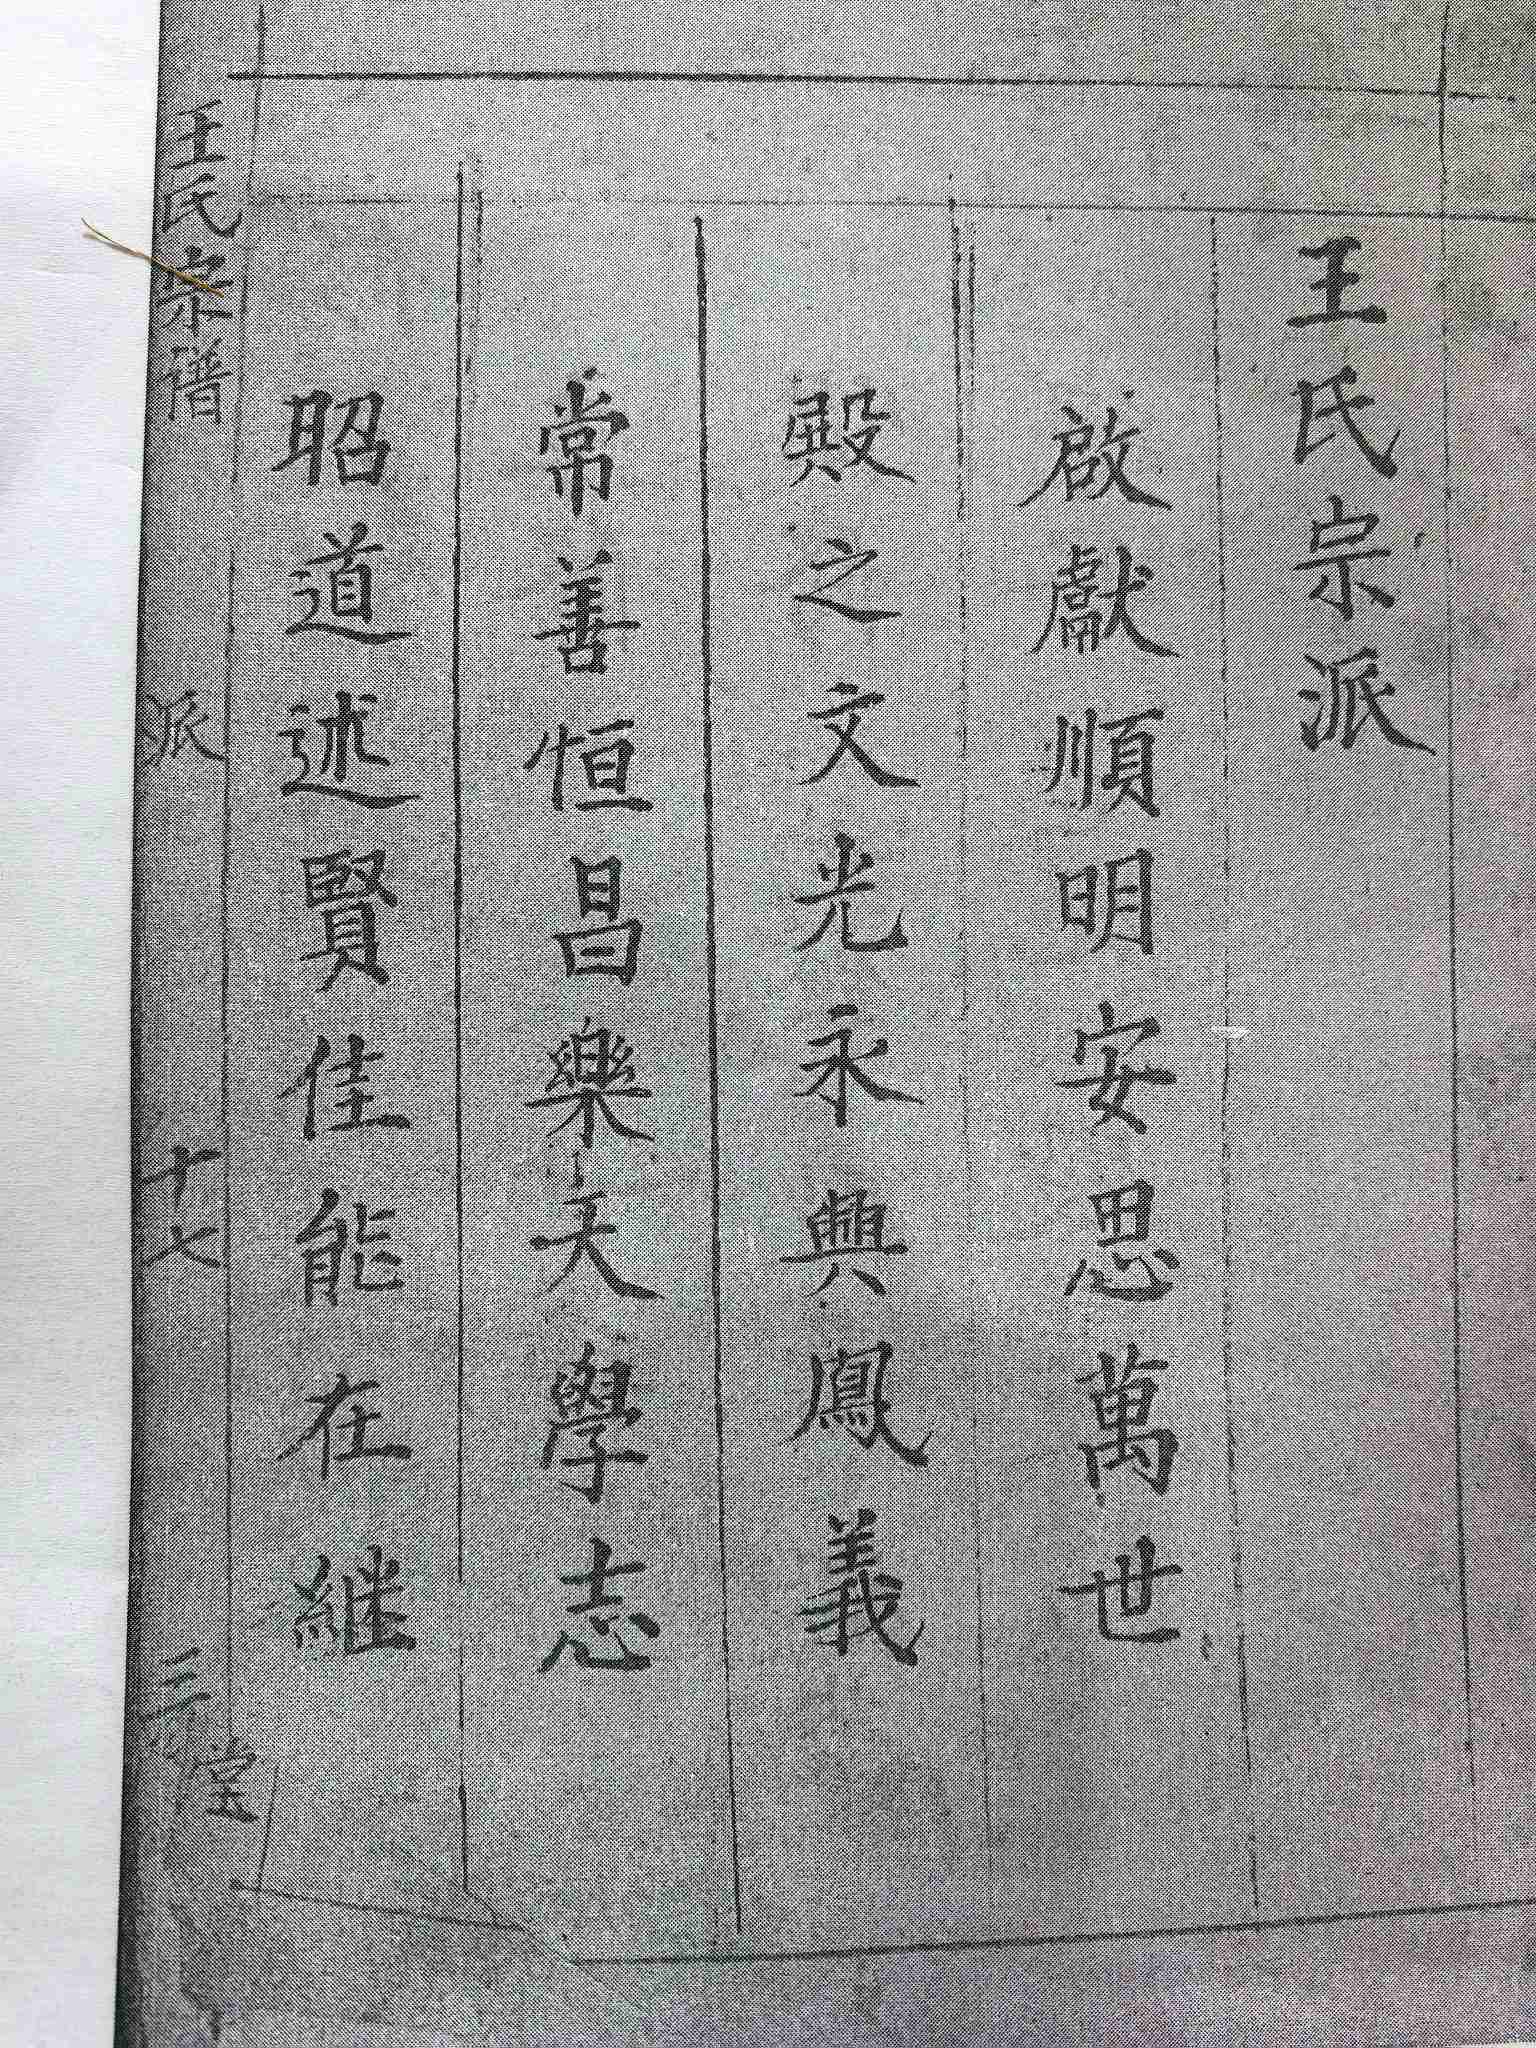 王氏宗派
啟獻順明安思萬世
殿之文光永興鳳義
常善恒昌樂天學志
昭道述賢佳能在継
王氏宗谱 派 十七 三 堂